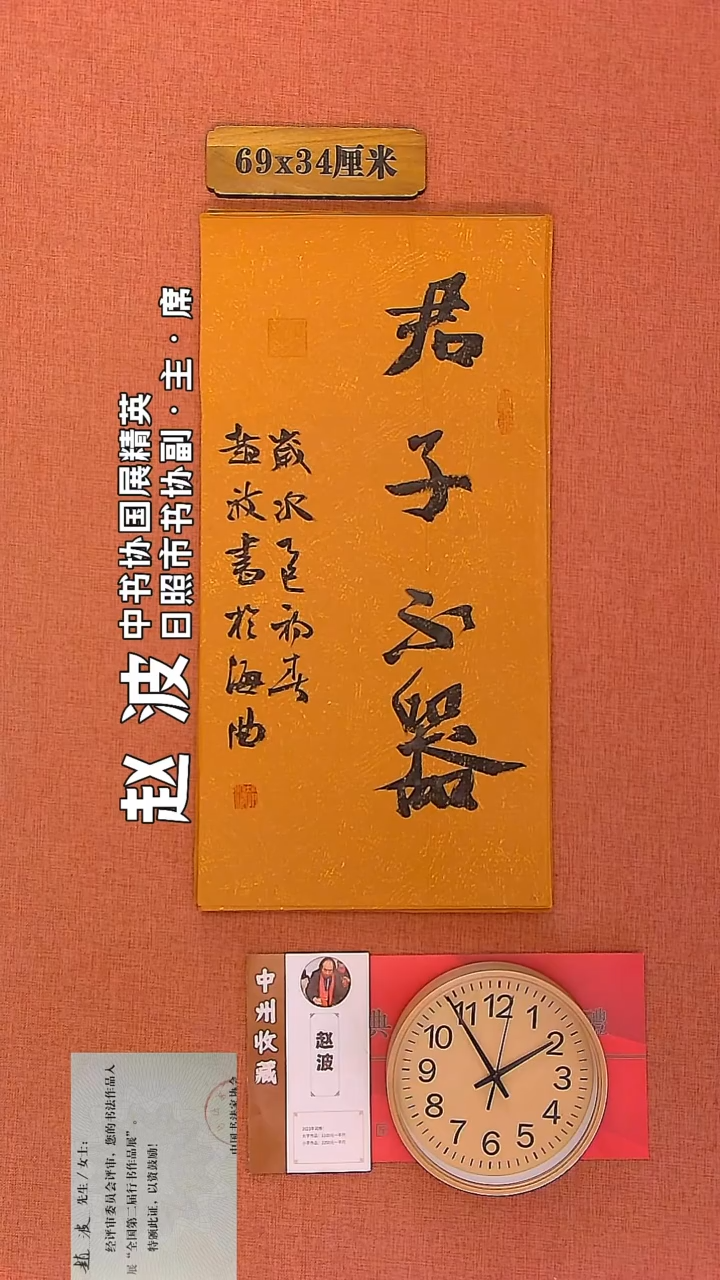 69x34厘米
君子不器
歲次乙巳初春
趙波書於海曲
赵波
中书协国展精英
日照市书协副·主·席
赵波
12
1
2
3
4
5
6
7
8
9
10
11
典
禮
趙波 先生/女士:
经评审委员会评审，您的书法作品入
展“全国第二届行书作品展”。
特颁此证，以资鼓励!
中国书法家协会